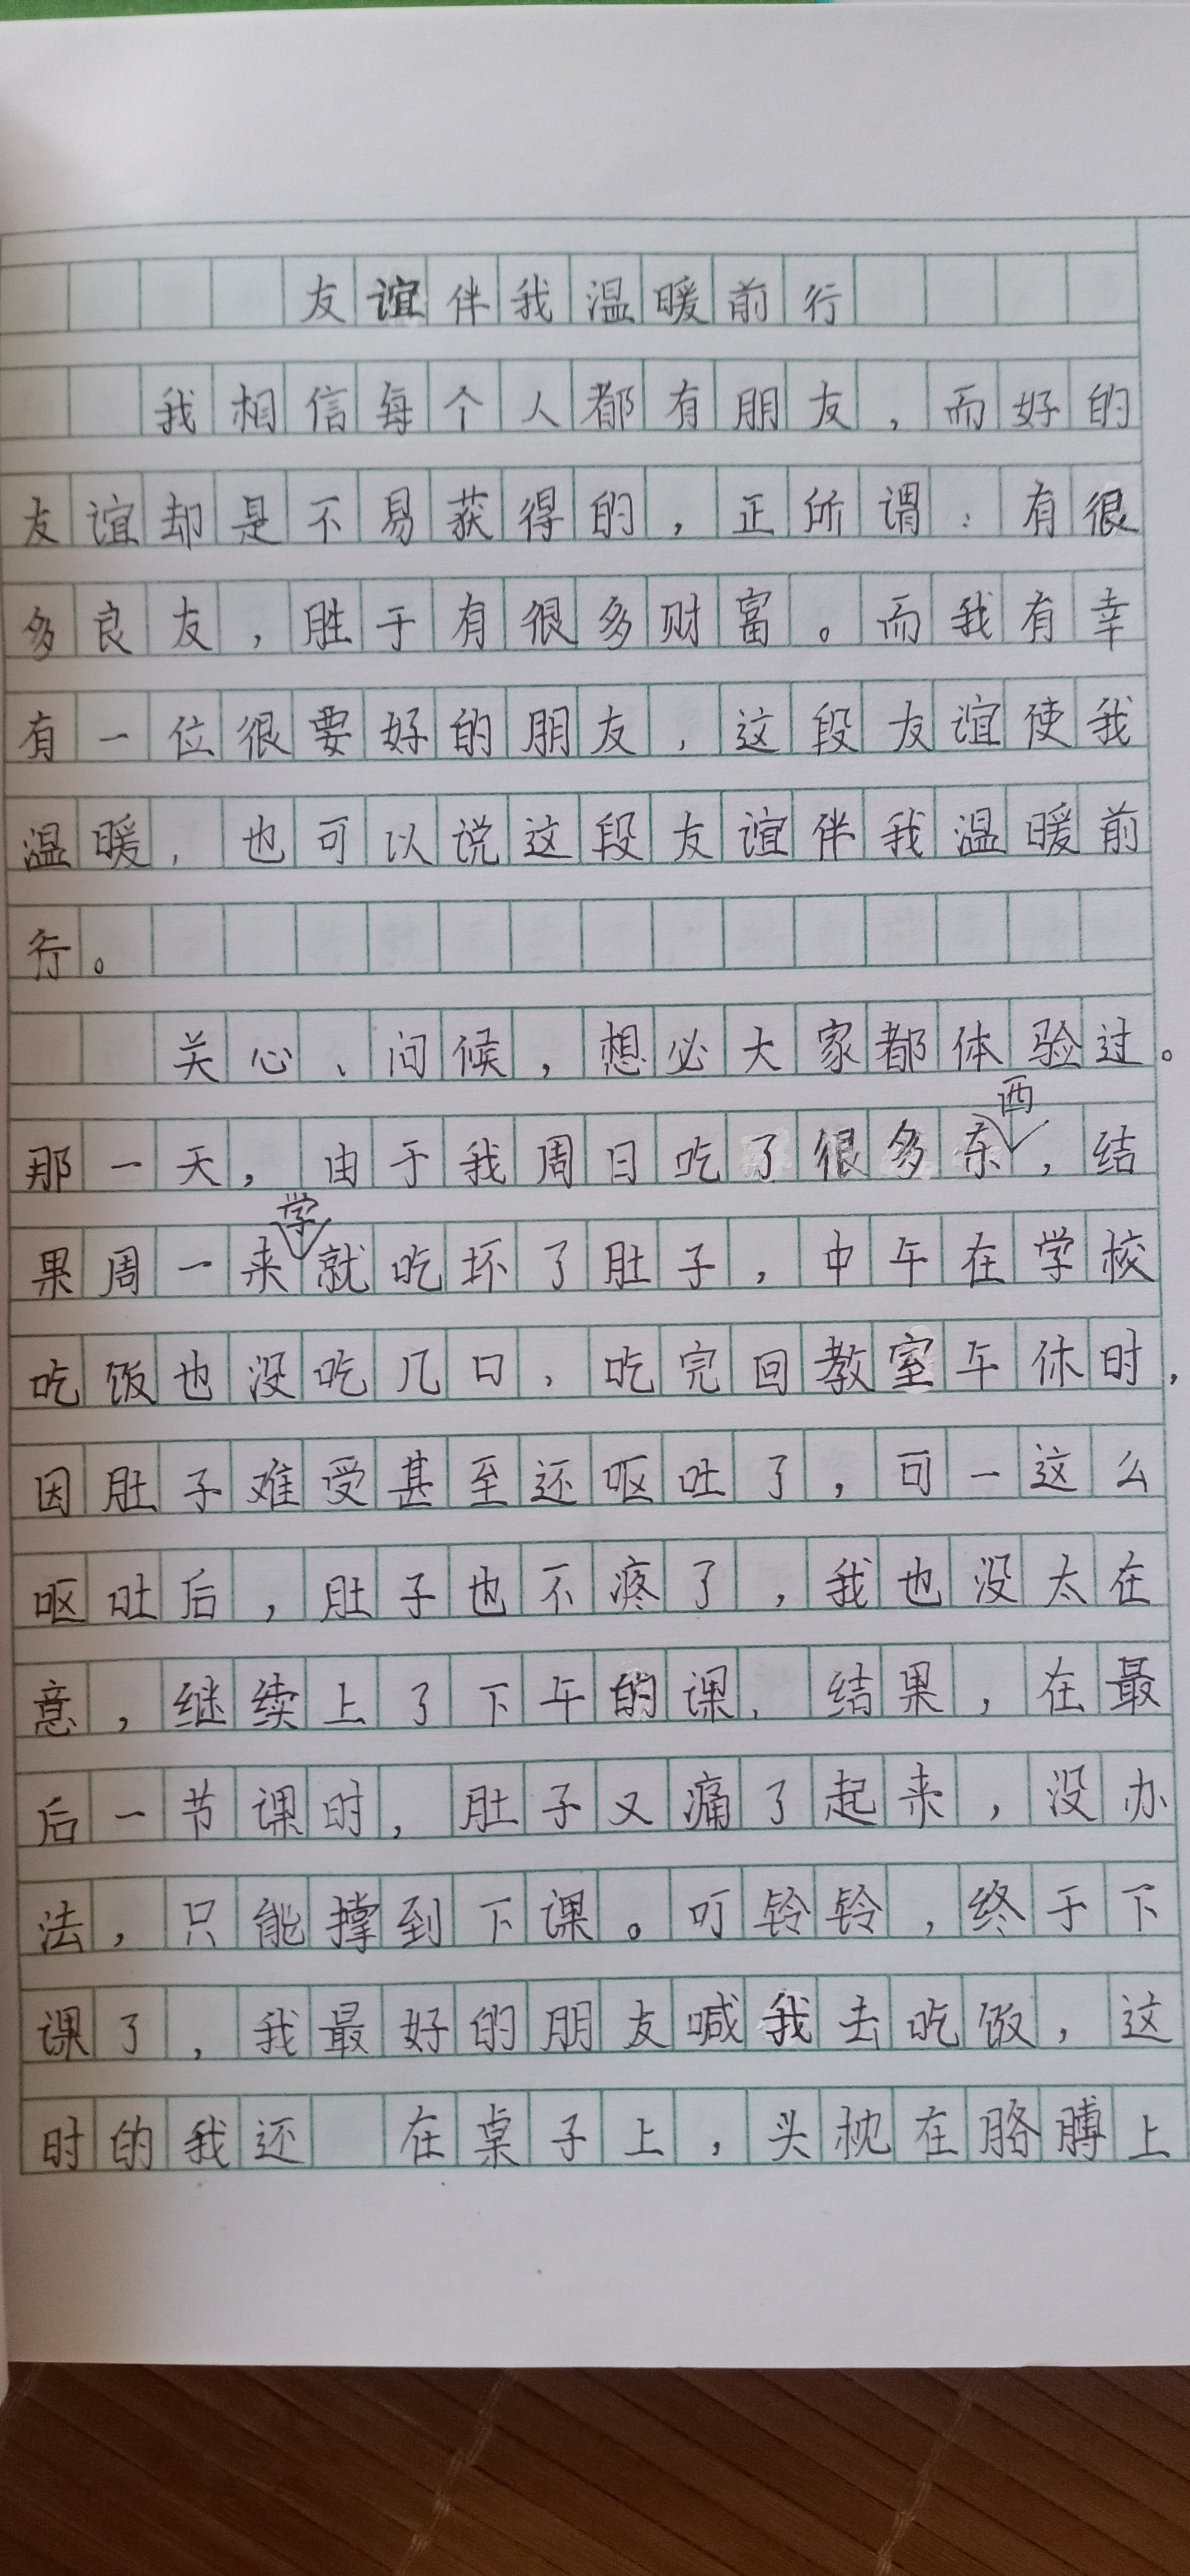 友谊伴我温暖前行
我相信每个人都有朋友，而好的
友谊却是不易获得的，正所谓：有很
多良友，胜于有很多财富。而我有幸
有一位很要好的朋友，这段友谊使我
温暖，也可以说这段友谊伴我温暖前
行。
关心、问候，想必大家都体验过。
那一天，由于我周日吃了很多东西，结
果周一来学就吃坏了肚子，中午在学校
吃饭也没吃几口，吃完回教室午休时，
因肚子难受甚至还呕吐了，可一这么
呕吐后，肚子也不疼了，我也没太在
意，继续上了下午的课，结果，在最
后一节课时，肚子又痛了起来，没办
法，只能撑到下课。叮铃铃，终于下
课了，我最好的朋友喊我去吃饭，这
时的我还 在桌子上，头枕在胳膊上